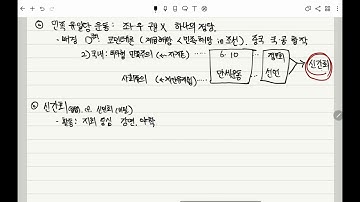 ② 민족 유일당 운동: 좌·우 구별 X 하나의 정당.
- 배경 ① 코민테른 (계급해방 < 민족해방 in 조선), 중국 국·공 합작
2) 국내: 비타협 민족주의 (↔ 자치론) 6·10 만세운동 정우회 선언 신간회
사회주의 (↔ 치안유지법)
③ 신간회
- 활동: 지회 중심 강연, 야학